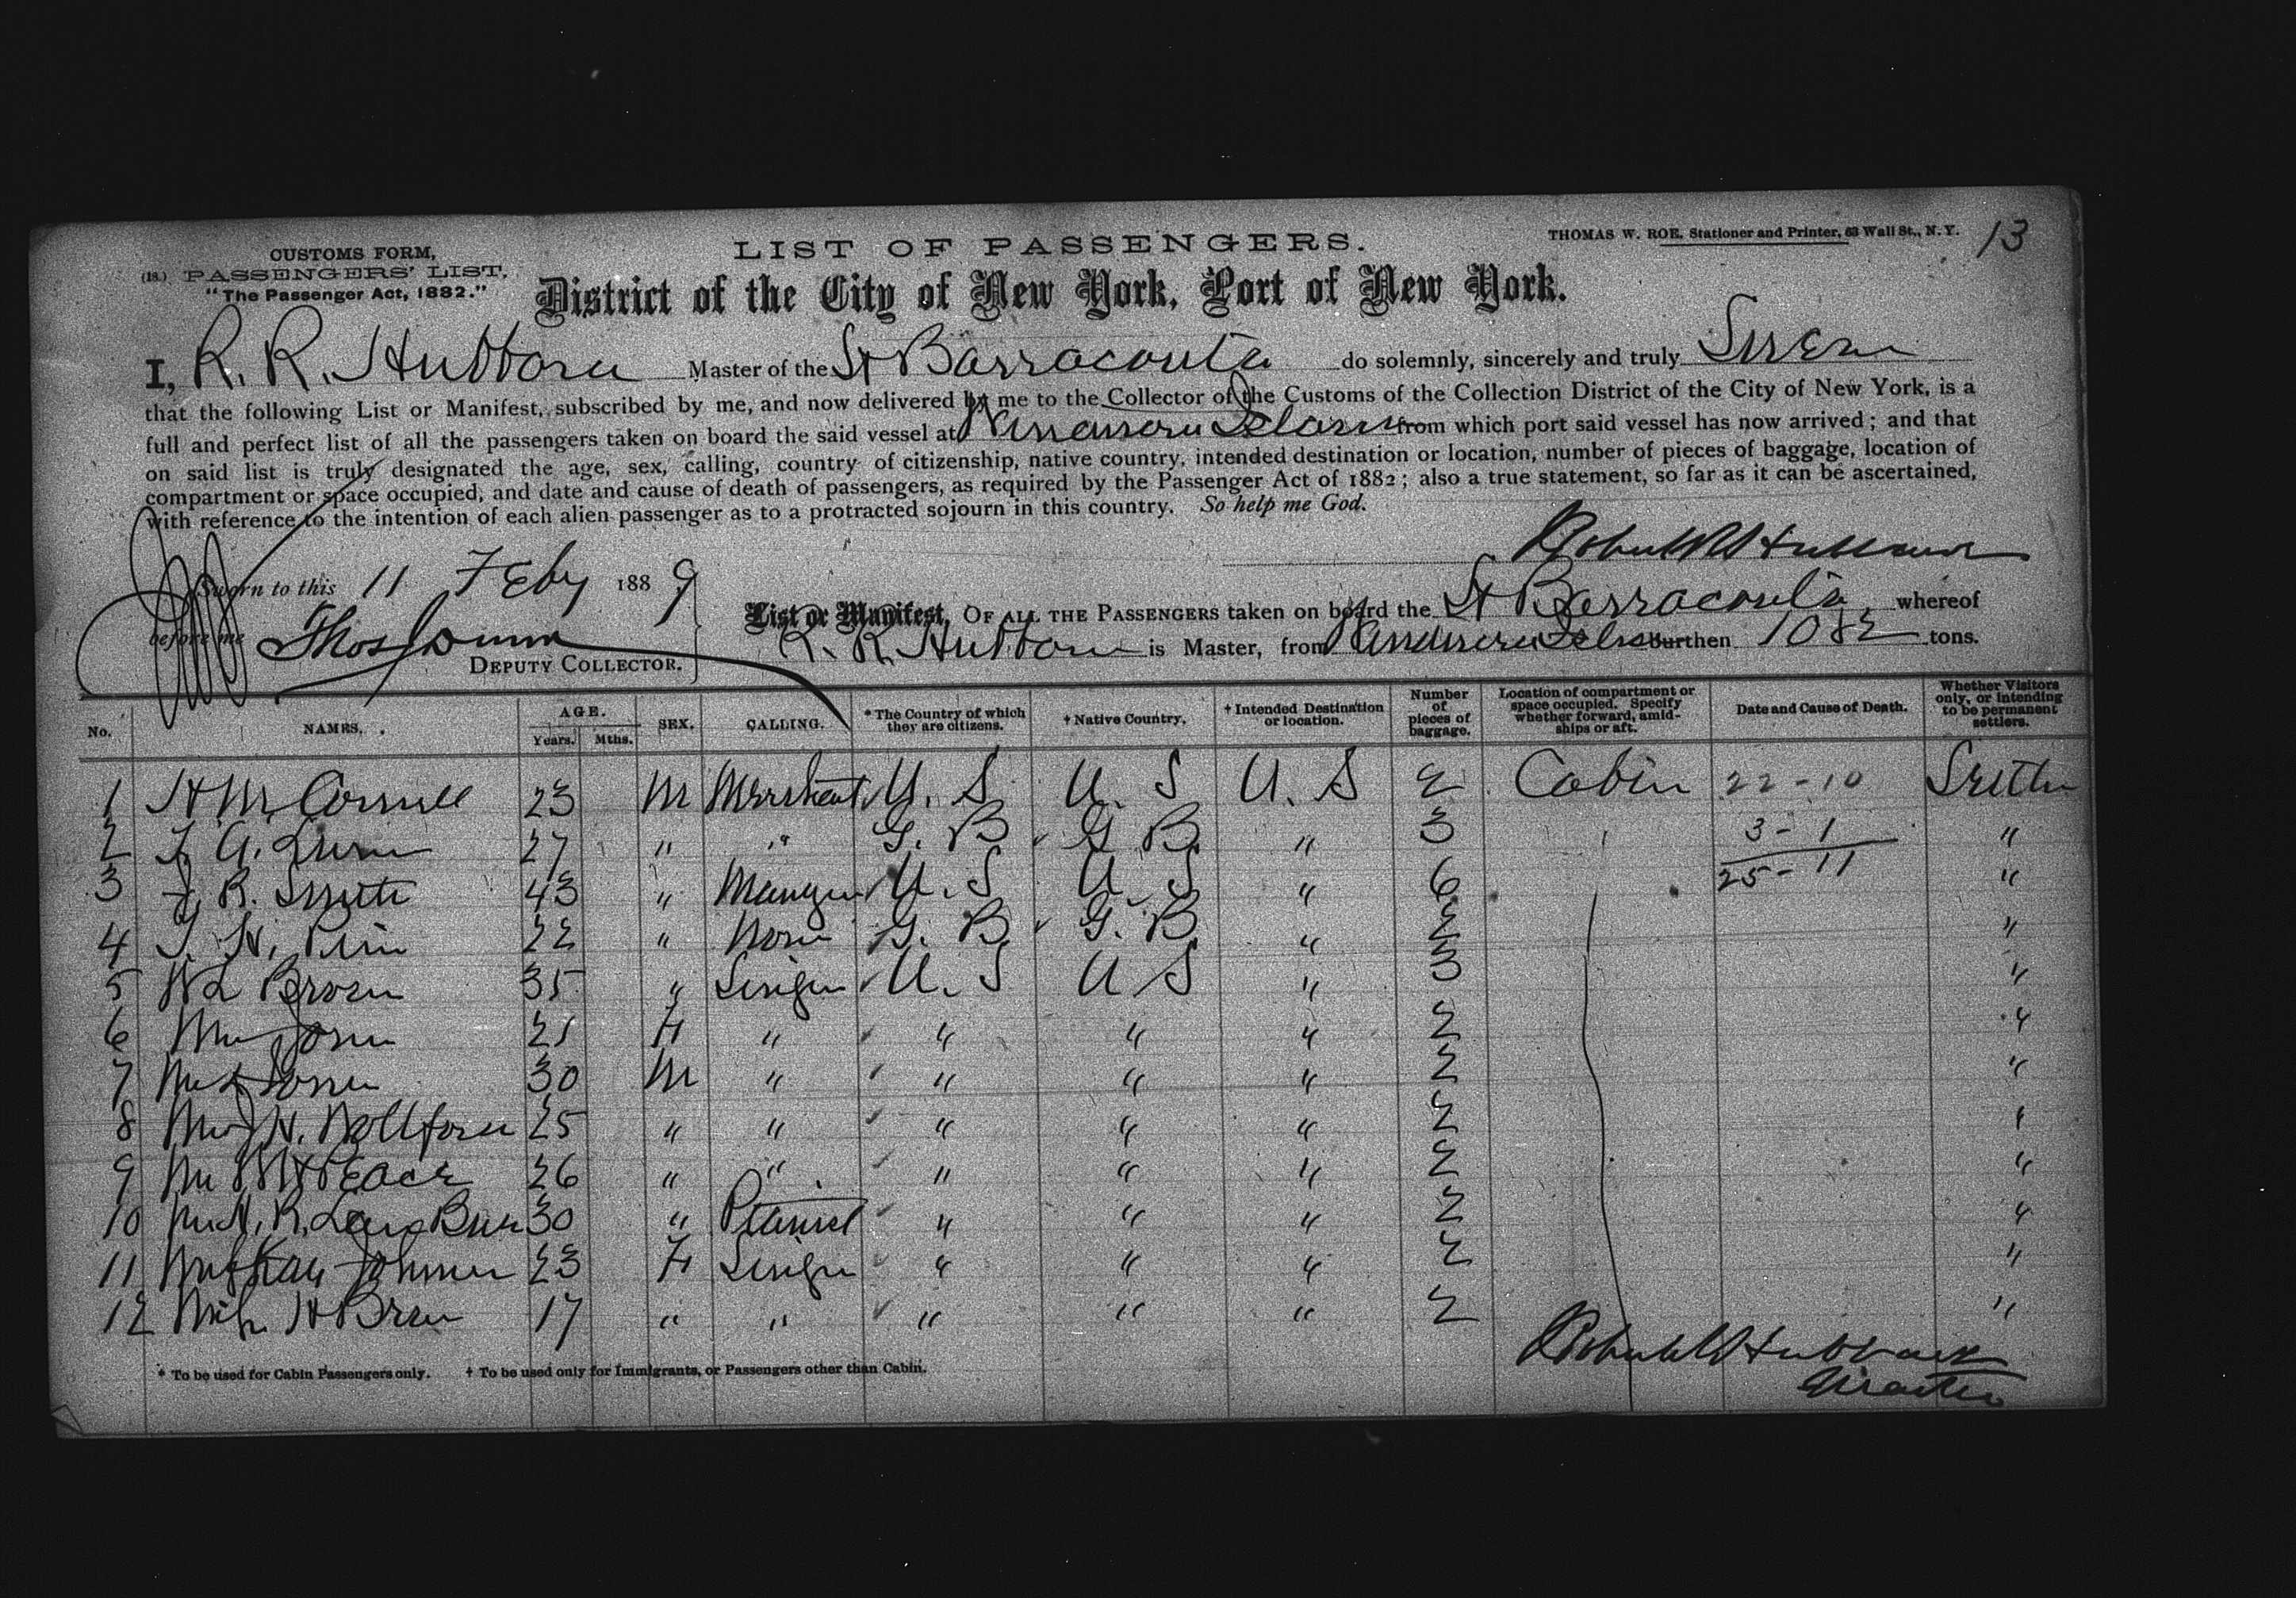 13
CUSTOMS FORM,
(18.) PASSENGERS' LIST,
"The Passenger Act, 1882."
LIST OF PASSENGERS.
THOMAS W. ROE, Stationer and Printer, 63 Wall St., N. Y.
District of the City of New York, Port of New York.
I, R. R. Master of the St Barracouta do solemnly, sincerely and truly Swear
that the following List or Manifest, subscribed by me, and now delivered by me to the Collector of the Customs of the Collection District of the City of New York, is a
full and perfect list of all the passengers taken on board the said vessel at Windward Islands from which port said vessel has now arrived; and that
on said list is truly designated the age, sex, calling, country of citizenship, native country, intended destination or location, number of pieces of baggage, location of
compartment or space occupied, and date and cause of death of passengers, as required by the Passenger Act of 1882; also a true statement, so far as it can be ascertained,
with reference to the intention of each alien passenger as to a protracted sojourn in this country. So help me God.
Sworn to this 11 Feby 1889
before me Thos Dunn
DEPUTY COLLECTOR.
List or Manifest, OF ALL THE PASSENGERS taken on board the St Barracouta, whereof
R. R. is Master, from Windward Islands burthen 1082 tons.
No. NAMES. AGE. Years. Mths. SEX. CALLING. * The Country of which they are citizens. † Native Country. † Intended Destination or location. Number of pieces of baggage. Location of compartment or space occupied. Specify whether forward, amidships or aft. Date and Cause of Death. Whether Visitors only, or intending to be permanent settlers.
1 H M 23 M Merchant U. S U. S U. S 2 Cabin 22-10 Settler
2 27 " " G. B G. B. " 3 3-1 "
3 R. Smith 43 " Manager U. S U S " 6 25-11 "
4 H. 22 " None G. B G. B. " 2 "
5 W L Brown 35 " Singer U. S U S " 3 "
6 21 F " " " " 2 "
7 30 M " " " " 2 "
8 25 " " " " " 2 "
9 26 " " " " " 2 "
10 30 " Pianist " " " 2 "
11 Johnson 23 F Singer " " " 2 "
12 Miss H 17 " " " " " 2 "
* To be used for Cabin Passengers only. † To be used only for Immigrants, or Passengers other than Cabin.
Master